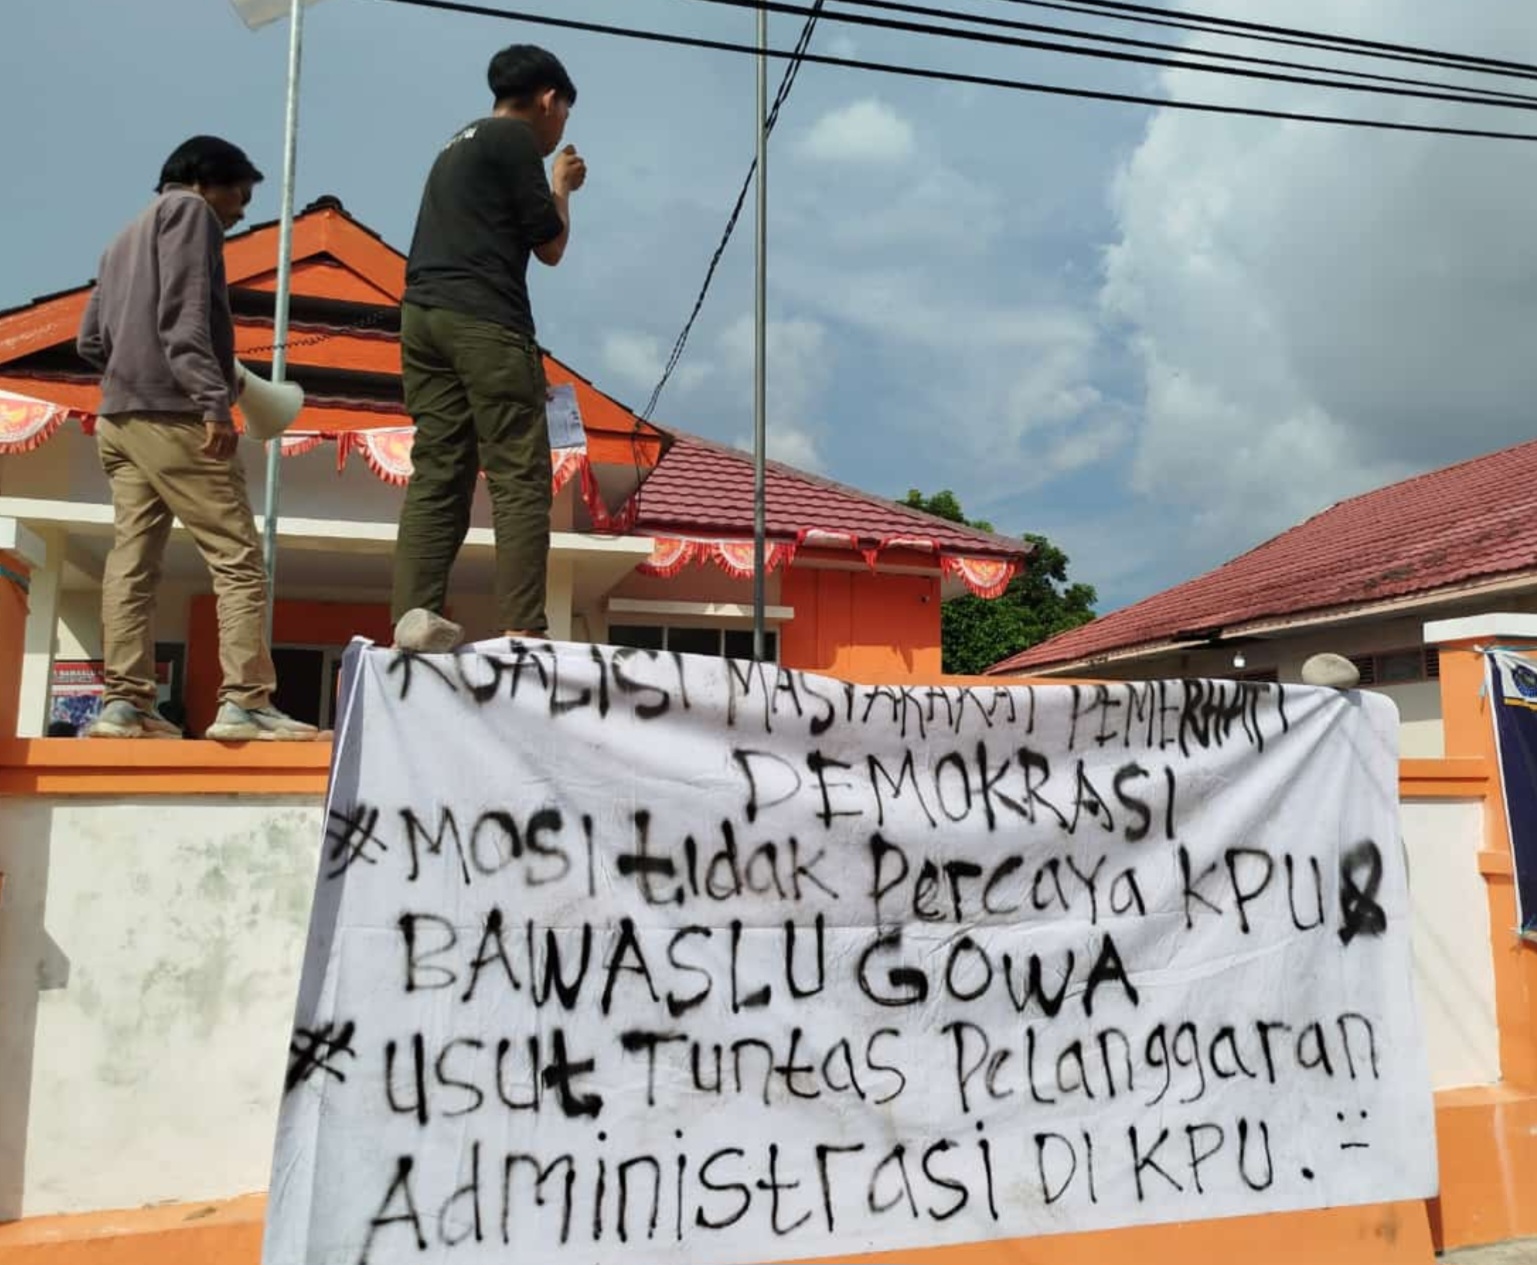 KOALISI MASYARAKAT PEMERHATI
DEMOKRASI
*MOSI tidak Percaya KPU &
BAWASLU GOWA
*usut Tuntas Pelanggaran
Administrasi DI KPU.